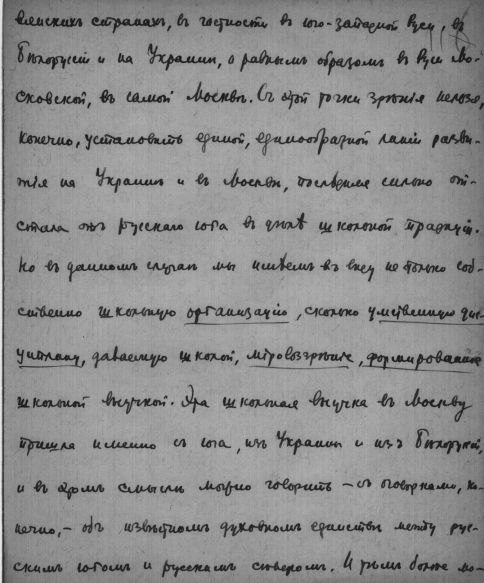 вянскихъ странахъ, въ частности въ юго-западной Руси, въ
Бѣлоруссіи и на Украинѣ, а равнымъ образомъ въ Руси Мо-
сковской, въ самой Москвѣ. Съ этой точки зрѣнія нельзя,
конечно, установить единой, единообразной линіи разви-
тія на Украинѣ и въ Москвѣ, послѣдняя сильно от-
стала отъ русскаго юга въ дѣлѣ школьной традиціи.
Но въ данномъ случаѣ мы имѣемъ въ виду не только соб-
ственно школьную организацію, сколько умственную дис-
циплину, даваемую школой, міровоззрѣніе, формированное
школьной выучкой. Эта школьная выучка въ Москву
пришла именно съ юга, изъ Украины и изъ Бѣлоруссіи,
и въ этомъ смыслѣ можно говорить – съ оговорками, ко-
нечно, – объ извѣстномъ духовномъ единствѣ между рус-
скимъ югомъ и русскимъ сѣверомъ. И тѣмъ болѣе мо-